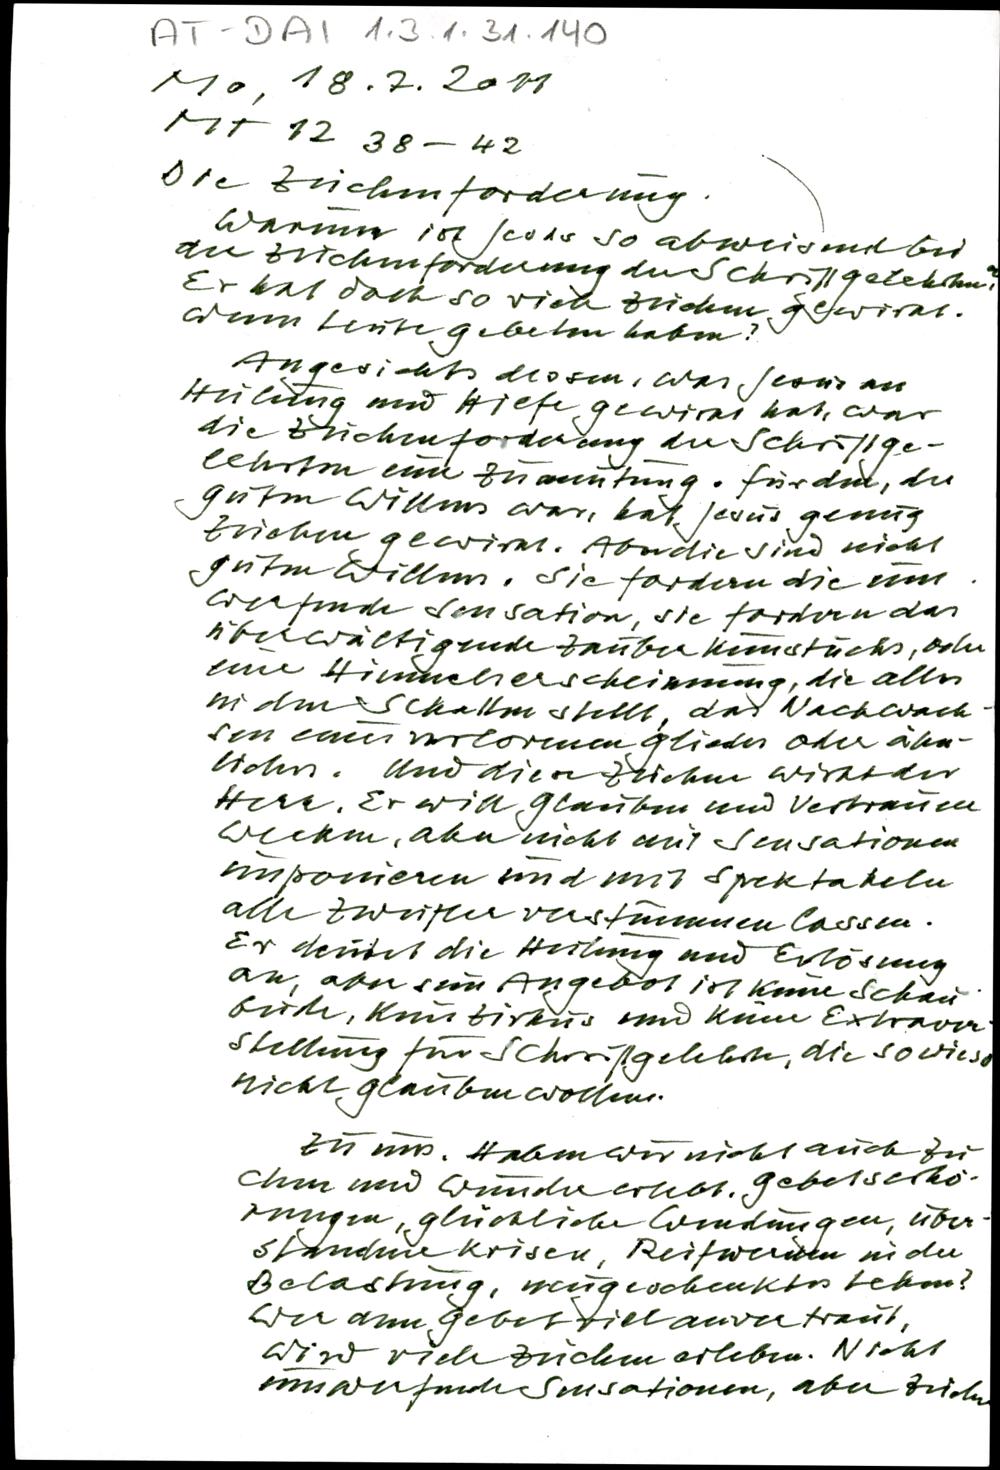 AT-DAI 1.3.1.31.140
Mo, 18.7.2011
Mt 12 38–42
Die Zeichenforderung.
Warum ist Jesus so abweisend bei
der Zeichenforderung der Schriftgelehrten?
Er hat doch so viele Zeichen gewirkt.
wenn Leute gebeten haben?
Angesichts dessen, was Jesus an
Heilung und Hilfe gewirkt hat, war
die Zeichenforderung der Schriftge-
lehrten eine Zumutung. Für den, der
guten Willens war, hat Jesus genug
Zeichen gewirkt. Aber die sind nicht
guten Willens. Sie fordern die um
werfende Sensation, sie fordern das
überwältigende Zauberkunststück, oder
eine Himmelserscheinung, die alles
in den Schatten stellt, das Nachwach-
sen eines verlorenen Gliedes oder ähn-
liches. Und diese Zeichen wirkt der
Herr. Er will Glauben und Vertrauen
wecken, aber nicht mit Sensationen
imponieren und mit Spektakeln
alle Zweifler verstummen lassen.
Er deutet die Heilung und Erlösung
an, aber sein Angebot ist keine Schau
bude, kein Zirkus und keine Extravor-
stellung für Schriftgelehrte, die sowieso
nicht glauben wollen.
Zu uns. Haben wir nicht auch Zei
chen und Wunder erlebt. Gebetserhö-
rungen, glückliche Wendungen, über-
standene Krisen, Reifwerden in der
Belastung, neugeschenktes Leben?
Wer dem Gebet viel anvertraut,
wird viele Zeichen erleben. Nicht
umwerfende Sensationen, aber Zeichen